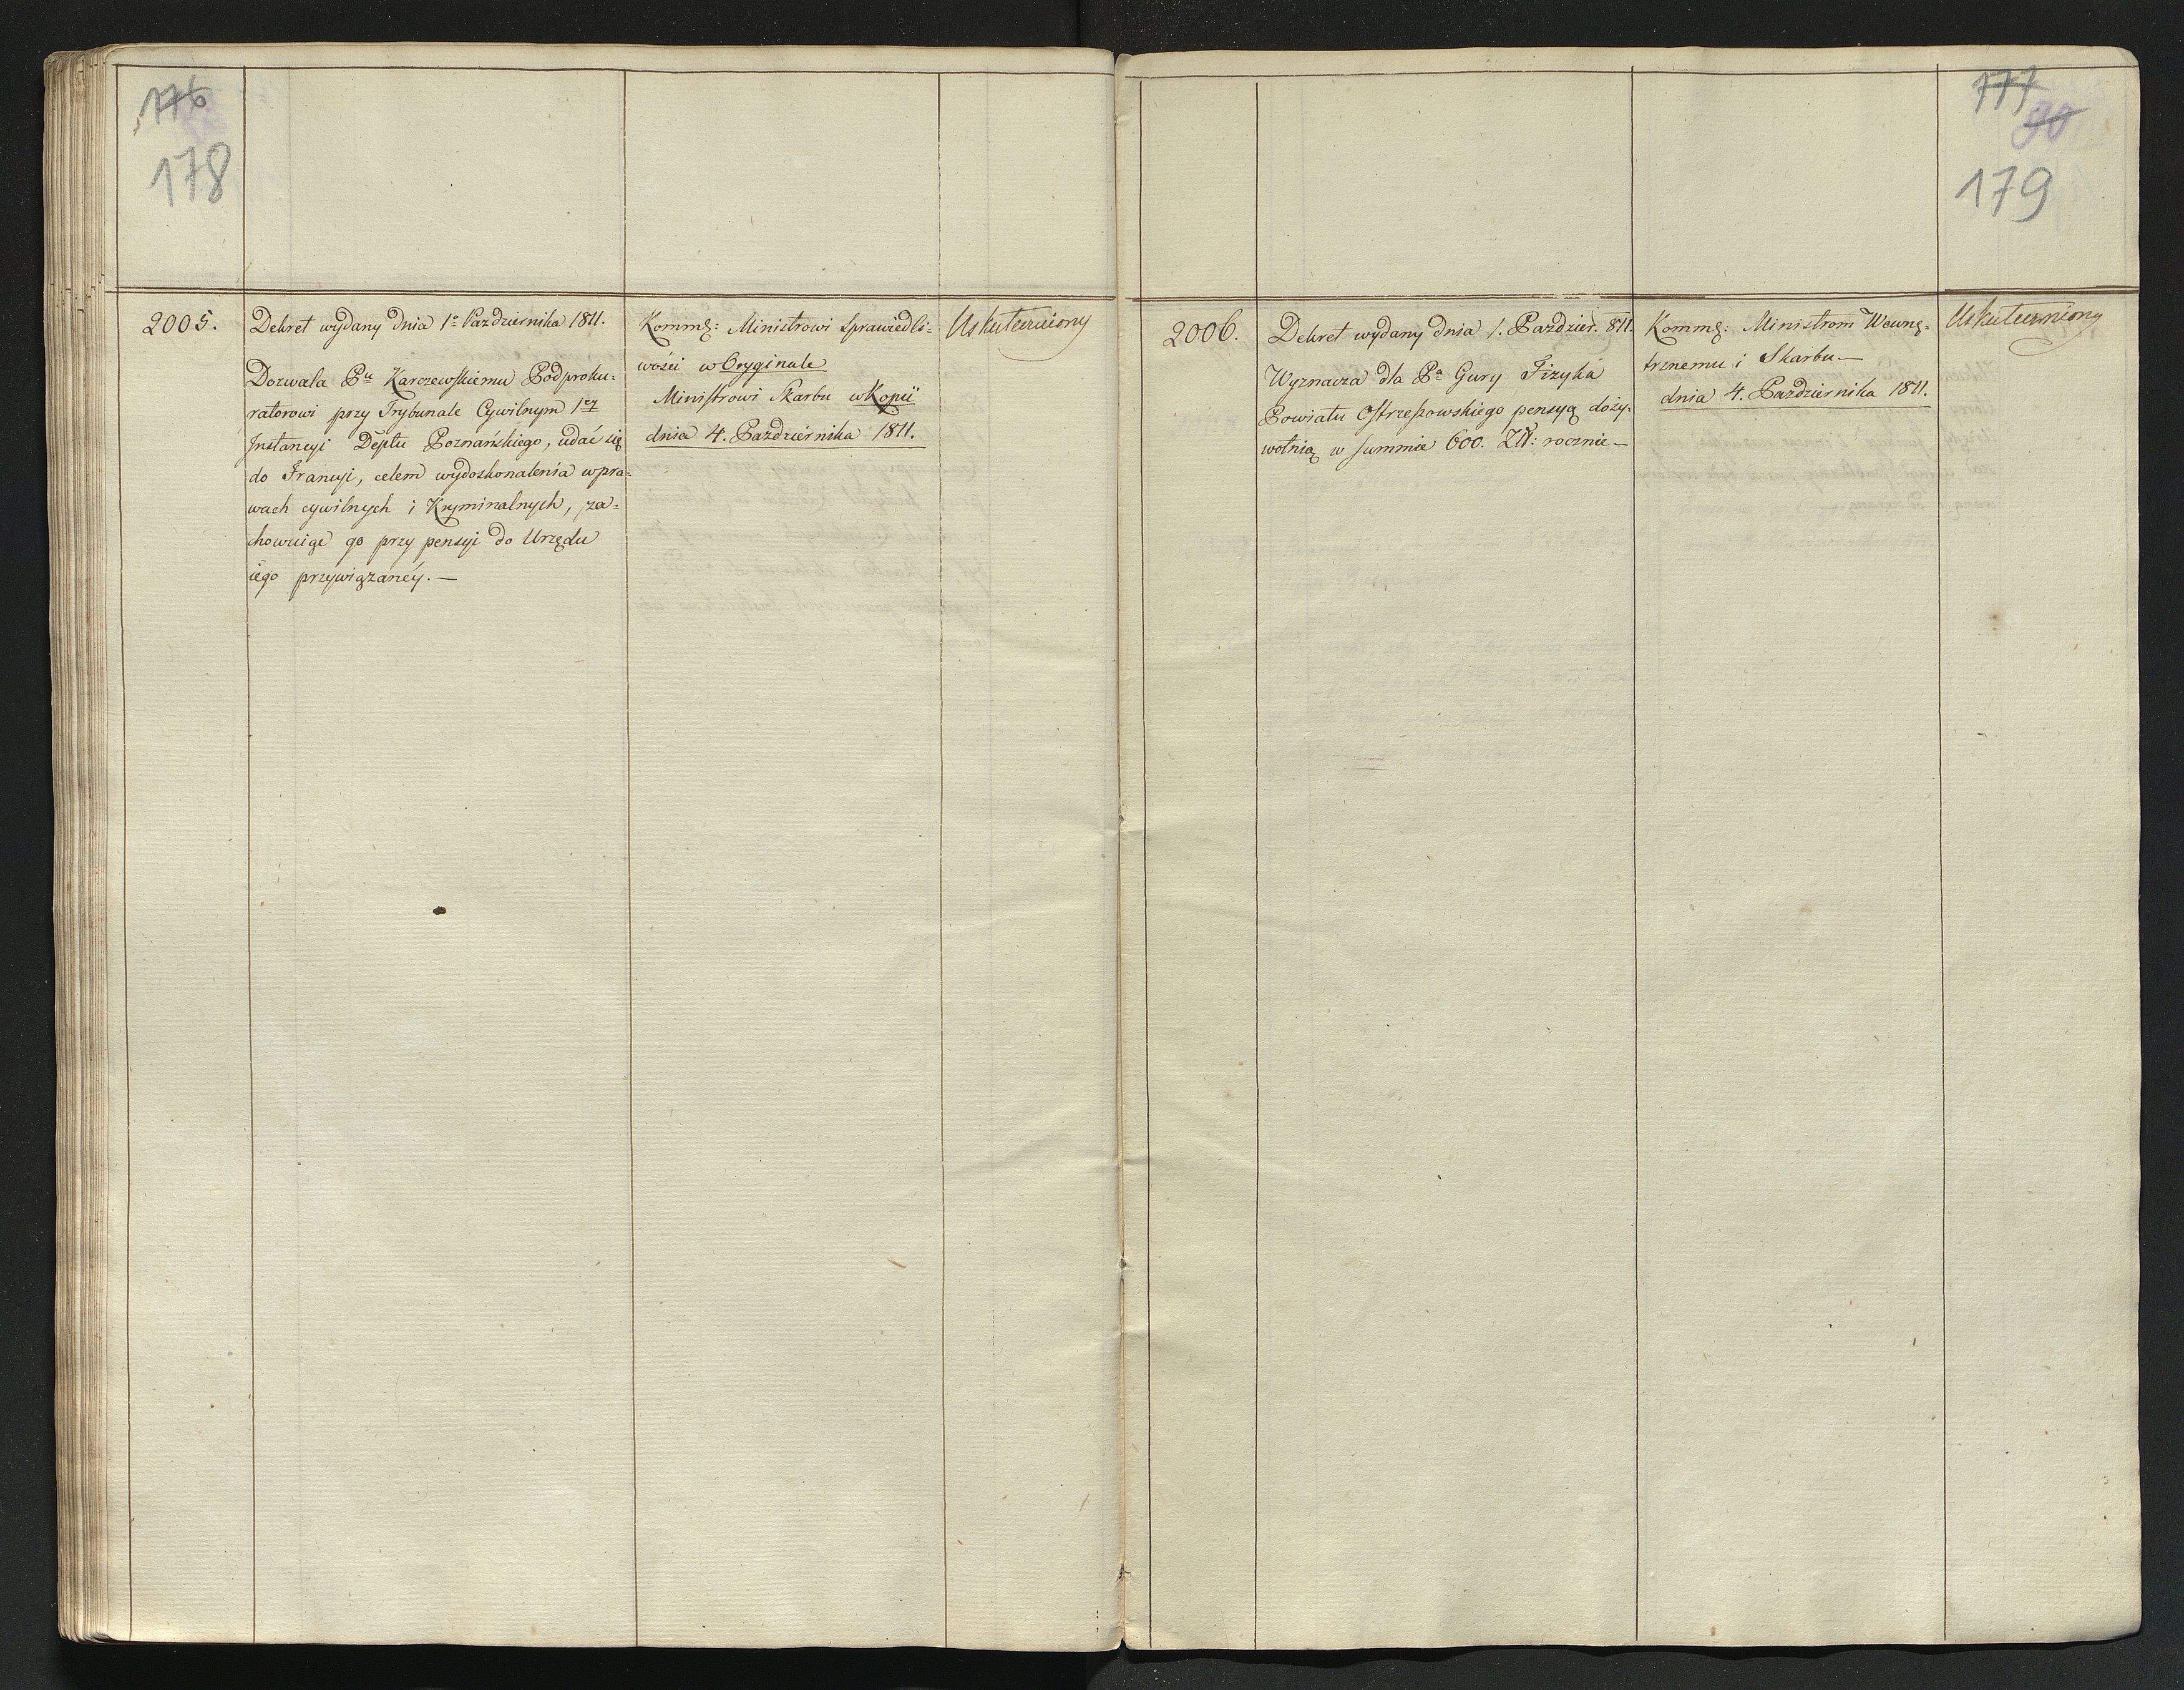 176
178
2005.
Dekret wydany dnia 1o Pazdziernika 1811.
Dozwala Pu Karczewskiemu Podproku=
ratorowi przy Trybunale Cywilnym 1ey
Instancyi Deptu Poznańskiego, udać się
do Francyi, celem wydoskonalenia w pra=
wach cywilnych i Kryminalnych, za=
chowuiąc go przy pensyi do Urzędu
iego przywiązanéy. —
Kommę: Ministrowi Sprawiedli=
wości w Oryginale
Ministrowi Skarbu w Kopii
dnia 4. Pazdziernika 1811.
Uskuteczniony
177
90
179
2006.
Dekret wydany dnia 1. Pazdzier. 811.
Wyznacza dla Pa Gury Fizyka
Powiatu Ostrzeszowskiego pensyą doży=
wotnią w summie 600. Zł: rocznie —
Kommę: Ministrom Wewnę=
trznemu i Skarbu —
dnia 4. Pazdziernika 1811.
Uskuteczniony